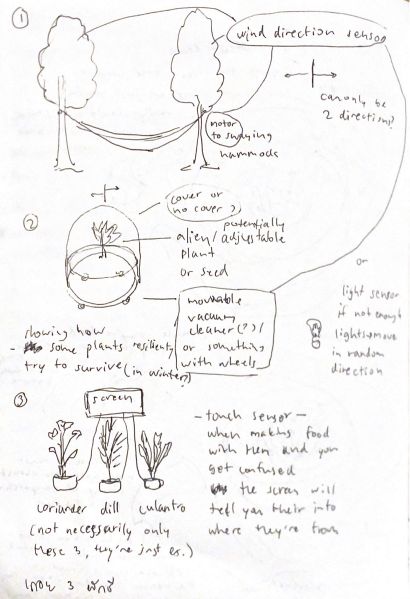 ①
wind direction sensor
can only be
2 directions?
motor
to swaying
hammock
②
cover or
no cover?
potentially
alien/adjustable
plant
or seed
or
movable
vacuum
cleaner(?)/
or something
with wheels
light sensor
if not enough
light → move
in random
direction
showing how
- some plants resiliently
try to survive (in winter?)
③
screen
coriander dill culantro
(not necessarily only
these 3, they're just ex.)
- touch sensor -
when making food
with them and you
got confused
the screen will
tell you their info
where they're from
3 ผักชี